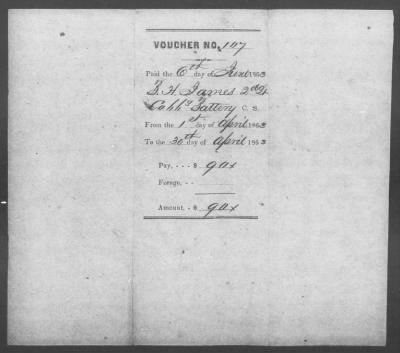 VOUCHER NO. 107
Paid the 6th day of June 1863
James 2d Lt
Cobb's Battery C. S.
From the 1st day of April 1863
To the 30th day of April 1863
Pay, - - - $ 90x
Forage, - -
Amount, - $ 90x